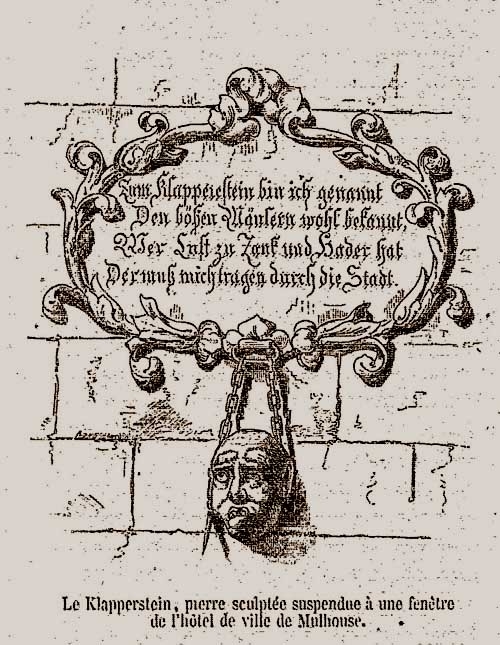 Zum Klapperstein bin ich genannt
Den bößen Mäulern wohl bekannt,
Wer Lust zu Zank und Hader hat
Der muß mich tragen durch die Stadt.
Le Klapperstein, pierre sculptée suspendue à une fenêtre
de l'hôtel de ville de Mulhouse.